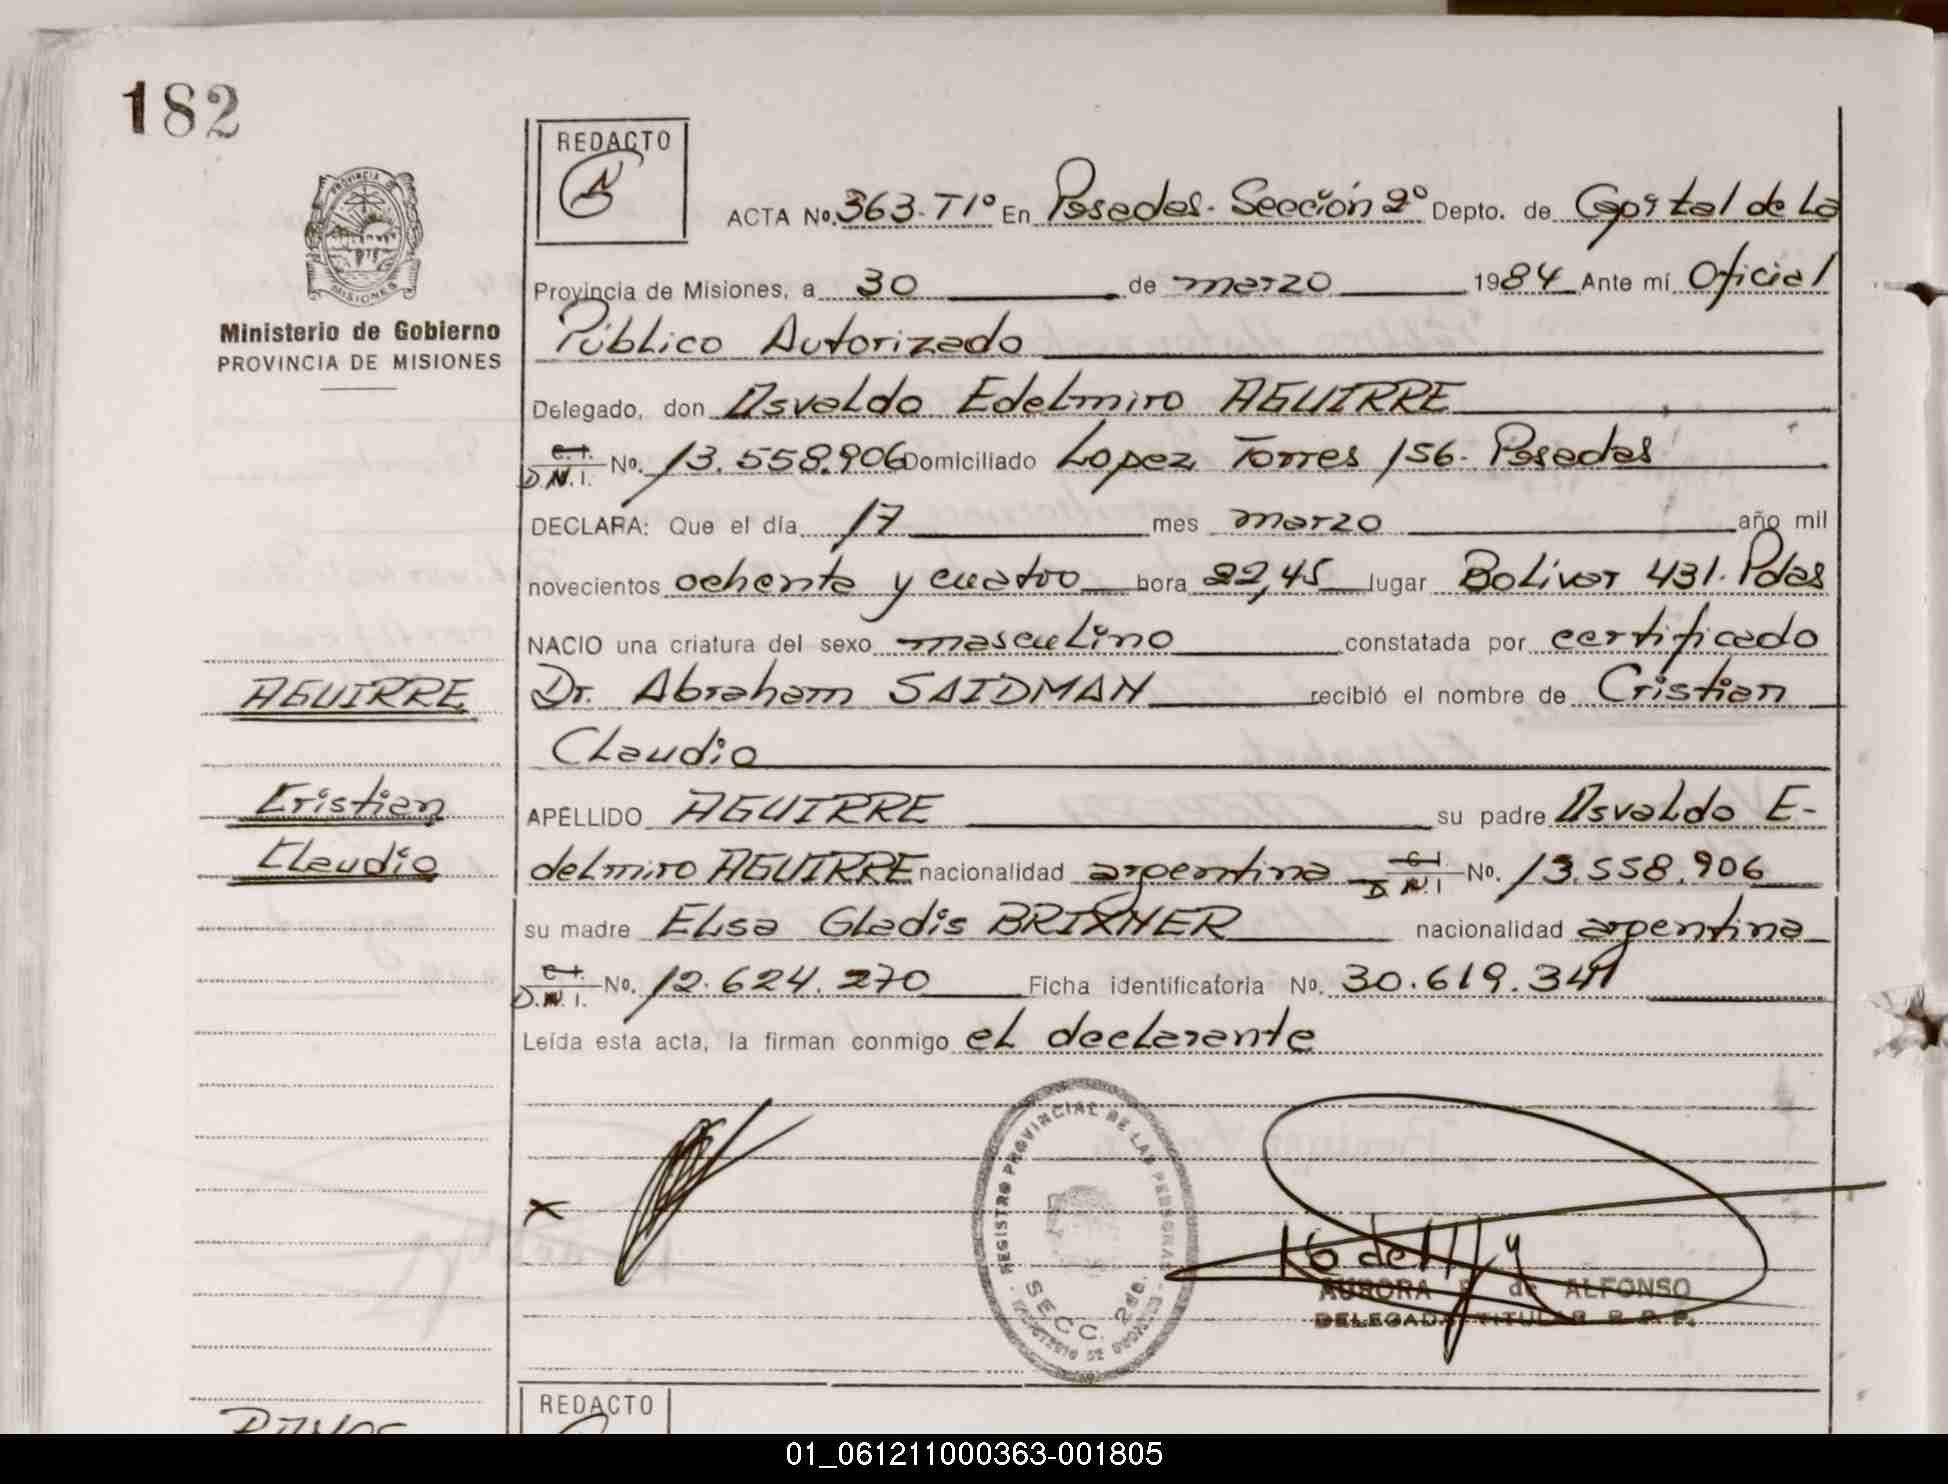 182
REDACTO
ACTA Nº. 363. T1º En Posadas. Sección 2º Depto. de Capital de La
Provincia de Misiones, a 30 de marzo 1984 Ante mí Oficial
Público Autorizado
Ministerio de Gobierno
PROVINCIA DE MISIONES
Delegado, don Osvaldo Edelmiro AGUIRRE
C.I. D.N.I. Nº. 13.558.906 Domiciliado Lopez Torres 156. Posadas
DECLARA: Que el día 17 mes marzo año mil
novecientos ochenta y cuatro hora 22,45 lugar Bolívar 431. Pdas
NACIO una criatura del sexo masculino constatada por certificado
Dr. Abraham SAIDMAN recibió el nombre de Cristian
Claudio
AGUIRRE
Cristian
Claudio
APELLIDO AGUIRRE su padre Osvaldo E-
delmiro AGUIRRE nacionalidad argentina C.I. D.N.I Nº. 13.558.906
su madre Elsa Gladis BRIXNER nacionalidad argentina
C.I. D.N.I. Nº. 12.624.270 Ficha identificatoria Nº. 30.619.341
Leída esta acta, la firman conmigo el declarante
x
REGISTRO PROVINCIAL DE LAS PERSONAS
SECC. 2da.
AURORA de ALFONSO
DELEGADA TITULAR R. P. P.
REDACTO
01_061211000363-001805